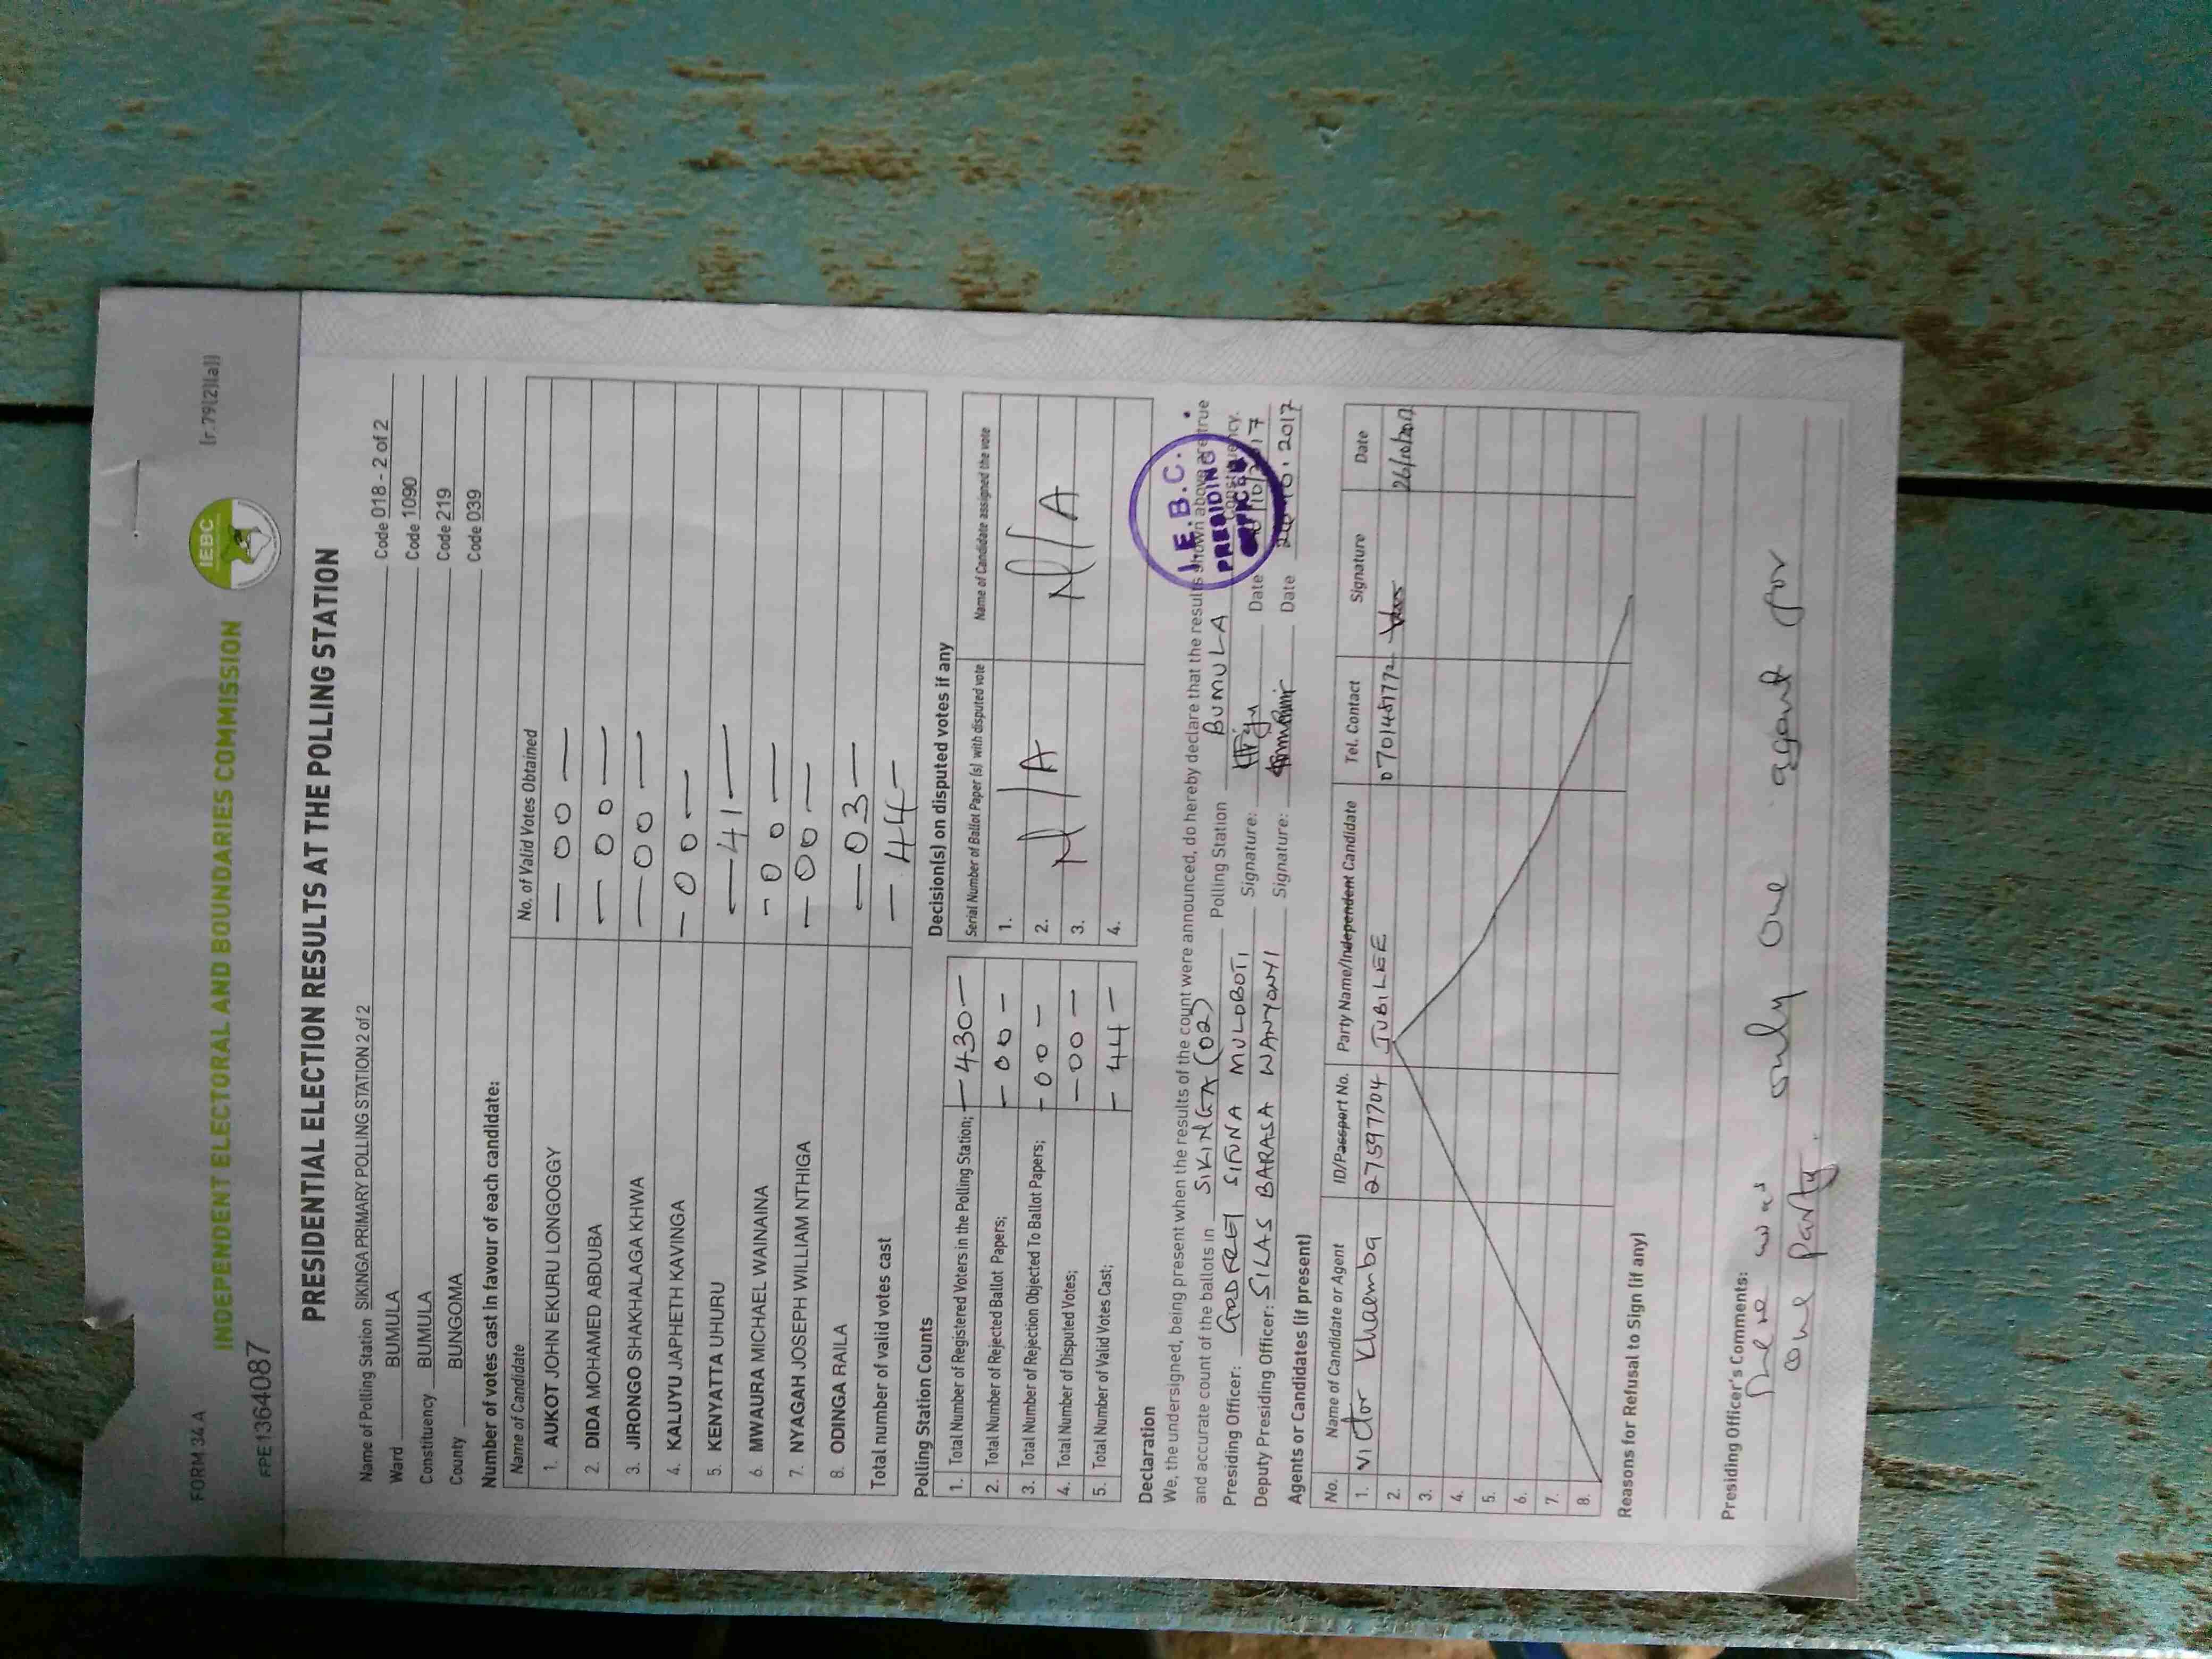 FORM 34 A [r.79(2)(a)]
INDEPENDENT ELECTORAL AND BOUNDARIES COMMISSION IEBC
FPE1364087
PRESIDENTIAL ELECTION RESULTS AT THE POLLING STATION
Name of Polling Station SIKINGA PRIMARY POLLING STATION 2 of 2 Code 018 - 2 of 2
Ward BUMULA Code 1090
Constituency BUMULA Code 219
County BUNGOMA Code 039
Number of votes cast in favour of each candidate:
Name of Candidate No. of Valid Votes Obtained
1. AUKOT JOHN EKURU LONGOGGY — 00 —
2. DIDA MOHAMED ABDUBA — 00 —
3. JIRONGO SHAKHALAGA KHWA — 00 —
4. KALUYU JAPHETH KAVINGA — 00 —
5. KENYATTA UHURU — 41 —
6. MWAURA MICHAEL WAINAINA - 00 —
7. NYAGAH JOSEPH WILLIAM NTHIGA — 00 —
8. ODINGA RAILA — 03 —
Total number of valid votes cast — 44 —
Polling Station Counts
1. Total Number of Registered Voters in the Polling Station; — 430 —
2. Total Number of Rejected Ballot Papers; - 00 -
3. Total Number of Rejection Objected To Ballot Papers; - 00 -
4. Total Number of Disputed Votes; - 00 -
5. Total Number of Valid Votes Cast; - 44 -
Decision(s) on disputed votes if any
Serial Number of Ballot Paper (s) with disputed vote Name of Candidate assigned the vote
1.
2. N/A N/A
3.
4.
Declaration
We, the undersigned, being present when the results of the count were announced, do hereby declare that the results shown above are true
and accurate count of the ballots in SIKINGA (02) Polling Station BUMULA Constituency.
Presiding Officer: GODFREY SIFUNA MULOBOTI Signature: Date 17
Deputy Presiding Officer: SILAS BARASA WANYONYI Signature: Date 26.10.2017
I.E.B.C.
PRESIDING
OFFICER
Agents or Candidates (if present)
No. Name of Candidate or Agent ID/Passport No. Party Name/Independent Candidate Tel. Contact Signature Date
1. Victor Khaemba 27597704 JUBILEE 0701481772 26/10/2017
2.
3.
4.
5.
6.
7.
8.
Reasons for Refusal to Sign (if any)
Presiding Officer's Comments:
was only one agent for
one party.